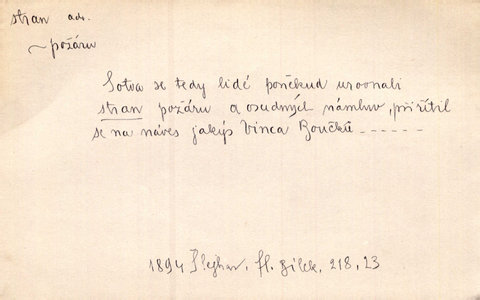 stran adv.
~ požáru
Sotva se tedy lidé poněkud urovnali
stran požáru a osudných námluv, přiřítil
se na náves jakýs Vinca Boučků ------
1894 Šlejhar, fl. 218, 23